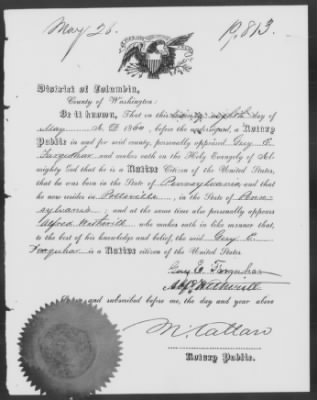 May 28.
P. 813
District of Columbia,
County of Washington:
Be it known, That on this twenty eighth day of
May A. D. 1860, before the undersigned, a Notary
Public in and for said county, personally appeared Guy E.
Farquhar and maketh oath on the Holy Evangely of Al-
mighty God that he is a Native Citizen of the United States,
that he was born in the State of Pennsylvania and that
he now resides in Pottsville, in the State of Penn-
sylvania, and at the same time also personally appears
Alfred Wetherill who maketh oath in like manner that,
to the best of his knowledge and belief, the said Guy E.
Farquhar is a Native citizen of the United States
Guy E. Farquhar
Alf Wetherill
Sworn and submitted before me, the day and year above
Notary Public.